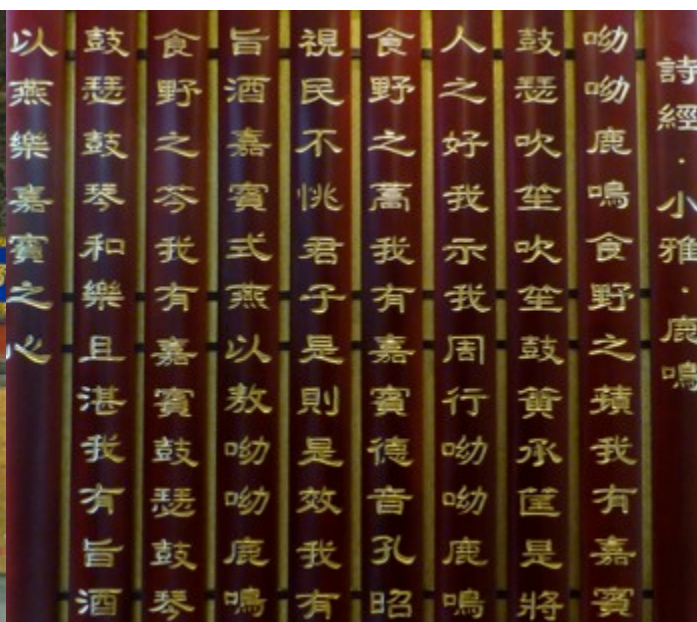 詩經·小雅·鹿鳴
呦呦鹿鳴食野之蘋我有嘉賓
鼓瑟吹笙吹笙鼓簧承筐是將
人之好我示我周行呦呦鹿鳴
食野之蒿我有嘉賓德音孔昭
視民不恌君子是則是效我有
旨酒嘉賓式燕以敖呦呦鹿鳴
食野之芩我有嘉賓鼓瑟鼓琴
鼓瑟鼓琴和樂且湛我有旨酒
以燕樂嘉賓之心